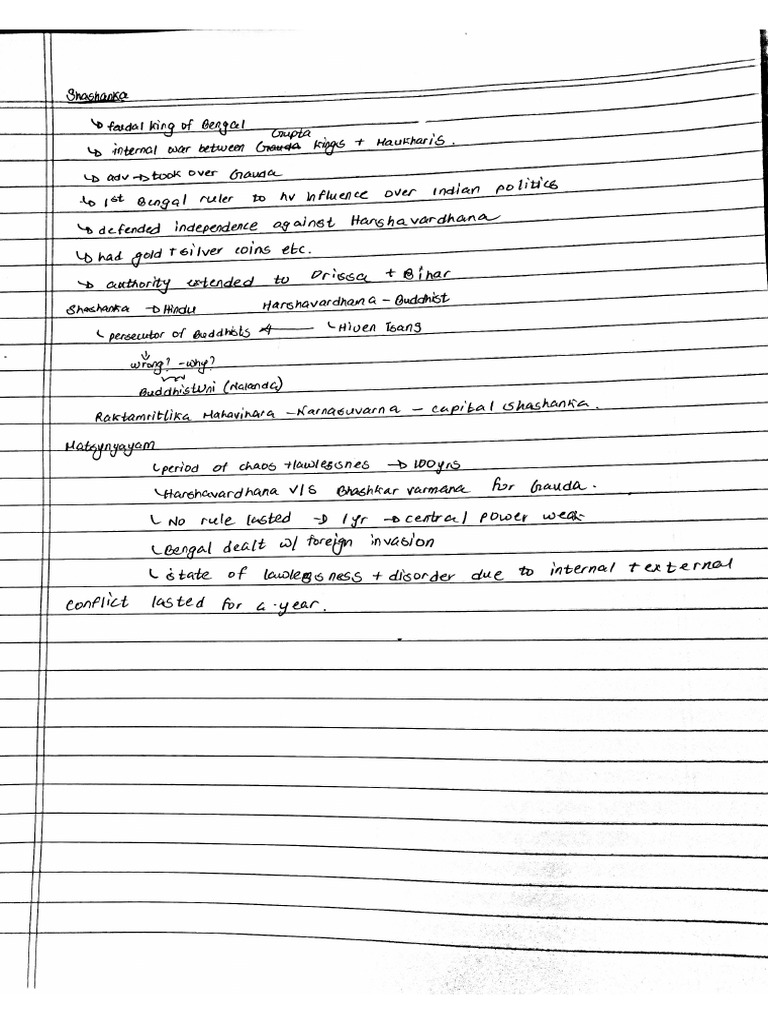 Shashanka
↳ feudal king of Bengal
↳ internal war between Gauda Gupta kings + Maukharis.
↳ adv → took over Gauda
↳ 1st Bengal ruler to hv influence over Indian politics
↳ defended independence against Harshavardhana
↳ had gold + silver coins etc.
↳ authority extended to Orissa + Bihar
Shashanka → Hindu Harshavardhana - Buddhist
↳ persecutor of Buddhists ← ↳ Hiuen Tsang
wrong? - why?
Buddhist Uni (Nalanda)
Raktamritlika Mahavihara - Karnasuvarna - capital Shashanka.
Matsynyayam
↳ period of chaos + lawlessnes → 100yrs
↳ Harshavardhana v/s Bhashkar varmana for Gauda.
↳ No rule lasted → 1yr → central power weak
↳ Bengal dealt w/ foreign invasion
↳ state of lawlessness + disorder due to internal + external
conflict lasted for a year.